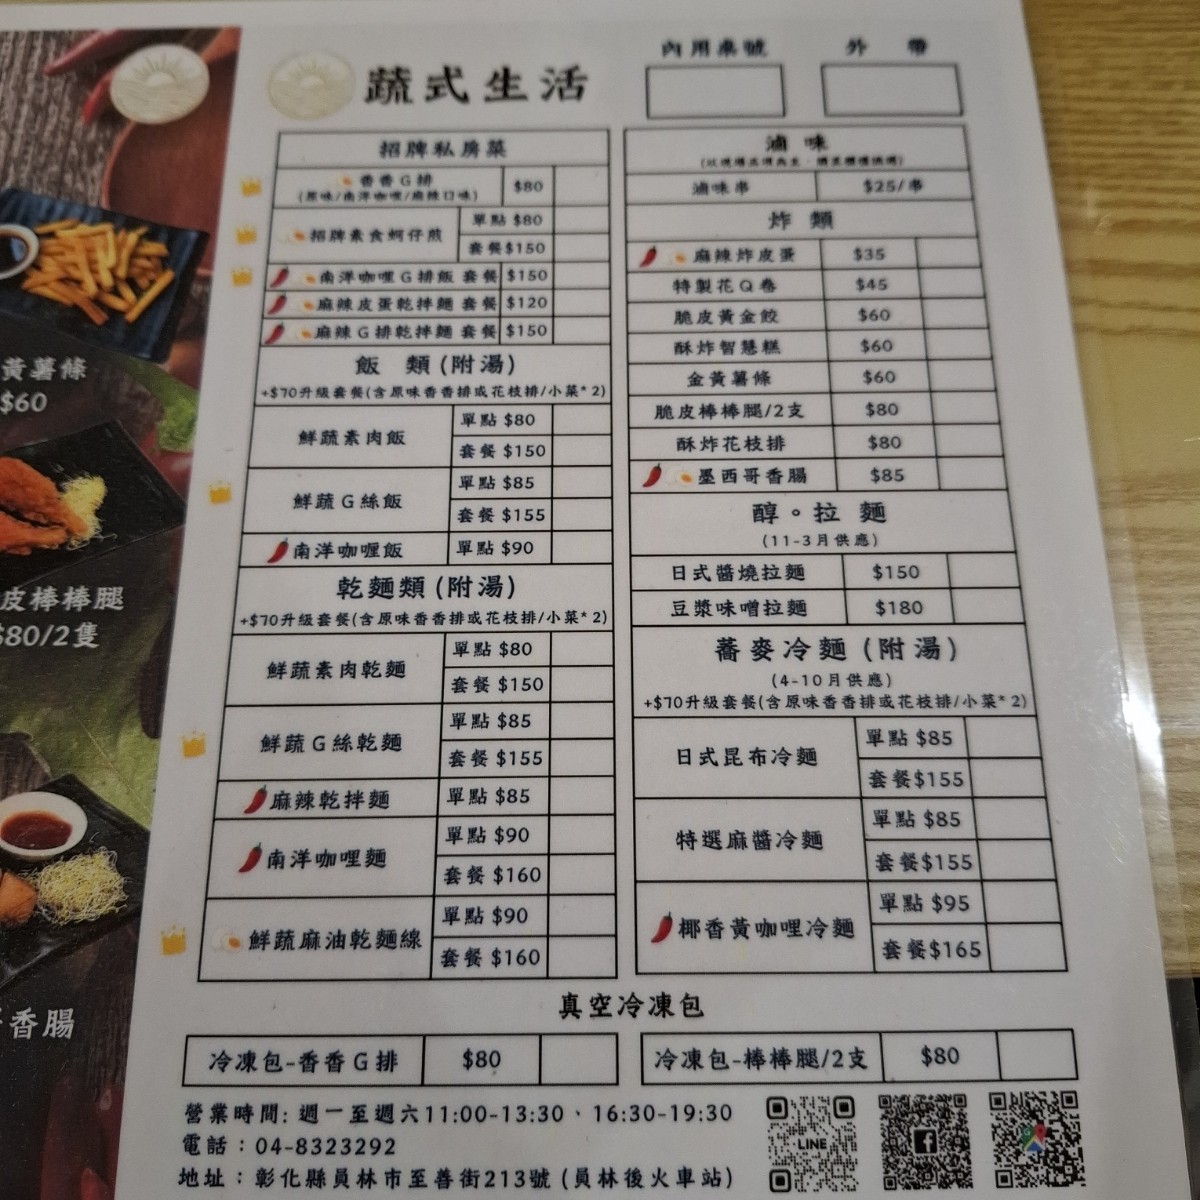 蔬式生活
內用桌號
外 帶
招牌私房菜
香香G排 $80
(原味/南洋咖哩/麻辣口味)
招牌素食蚵仔煎 單點 $80
套餐$150
南洋咖哩G排飯 套餐 $150
麻辣皮蛋乾拌麵 套餐 $120
麻辣G排乾拌麵 套餐 $150
飯 類(附湯)
+$70升級套餐(含原味香香排或花枝排/小菜*2)
鮮蔬素肉飯 單點 $80
套餐 $150
鮮蔬G絲飯 單點 $85
套餐 $155
南洋咖喱飯 單點 $90
乾麵類(附湯)
+$70升級套餐(含原味香香排或花枝排/小菜*2)
鮮蔬素肉乾麵 單點 $80
套餐 $150
鮮蔬G絲乾麵 單點 $85
套餐 $155
麻辣乾拌麵 單點 $85
南洋咖哩麵 單點 $90
套餐 $160
鮮蔬麻油乾麵線 單點 $90
套餐 $160
滷 味
滷味串 $25/串
炸 類
麻辣炸皮蛋 $35
特製花Q卷 $45
脆皮黃金餃 $60
酥炸智慧糕 $60
金黃薯條 $60
脆皮棒棒腿/2支 $80
酥炸花枝排 $80
墨西哥香腸 $85
醇。拉 麵
(11-3月供應)
日式醬燒拉麵 $150
豆漿味噌拉麵 $180
蕎麥冷麵(附湯)
(4-10月供應)
+$70升級套餐(含原味香香排或花枝排/小菜*2)
日式昆布冷麵 單點 $85
套餐$155
特選麻醬冷麵 單點 $85
套餐$155
椰香黃咖哩冷麵 單點 $95
套餐$165
真空冷凍包
冷凍包-香香G排 $80
冷凍包-棒棒腿/2支 $80
營業時間: 週一至週六11:00-13:30、16:30-19:30
電話：04-8323292
地址：彰化縣員林市至善街213號 (員林後火車站)
LINE
黃薯條
$60
皮棒棒腿
$80/2隻
香腸